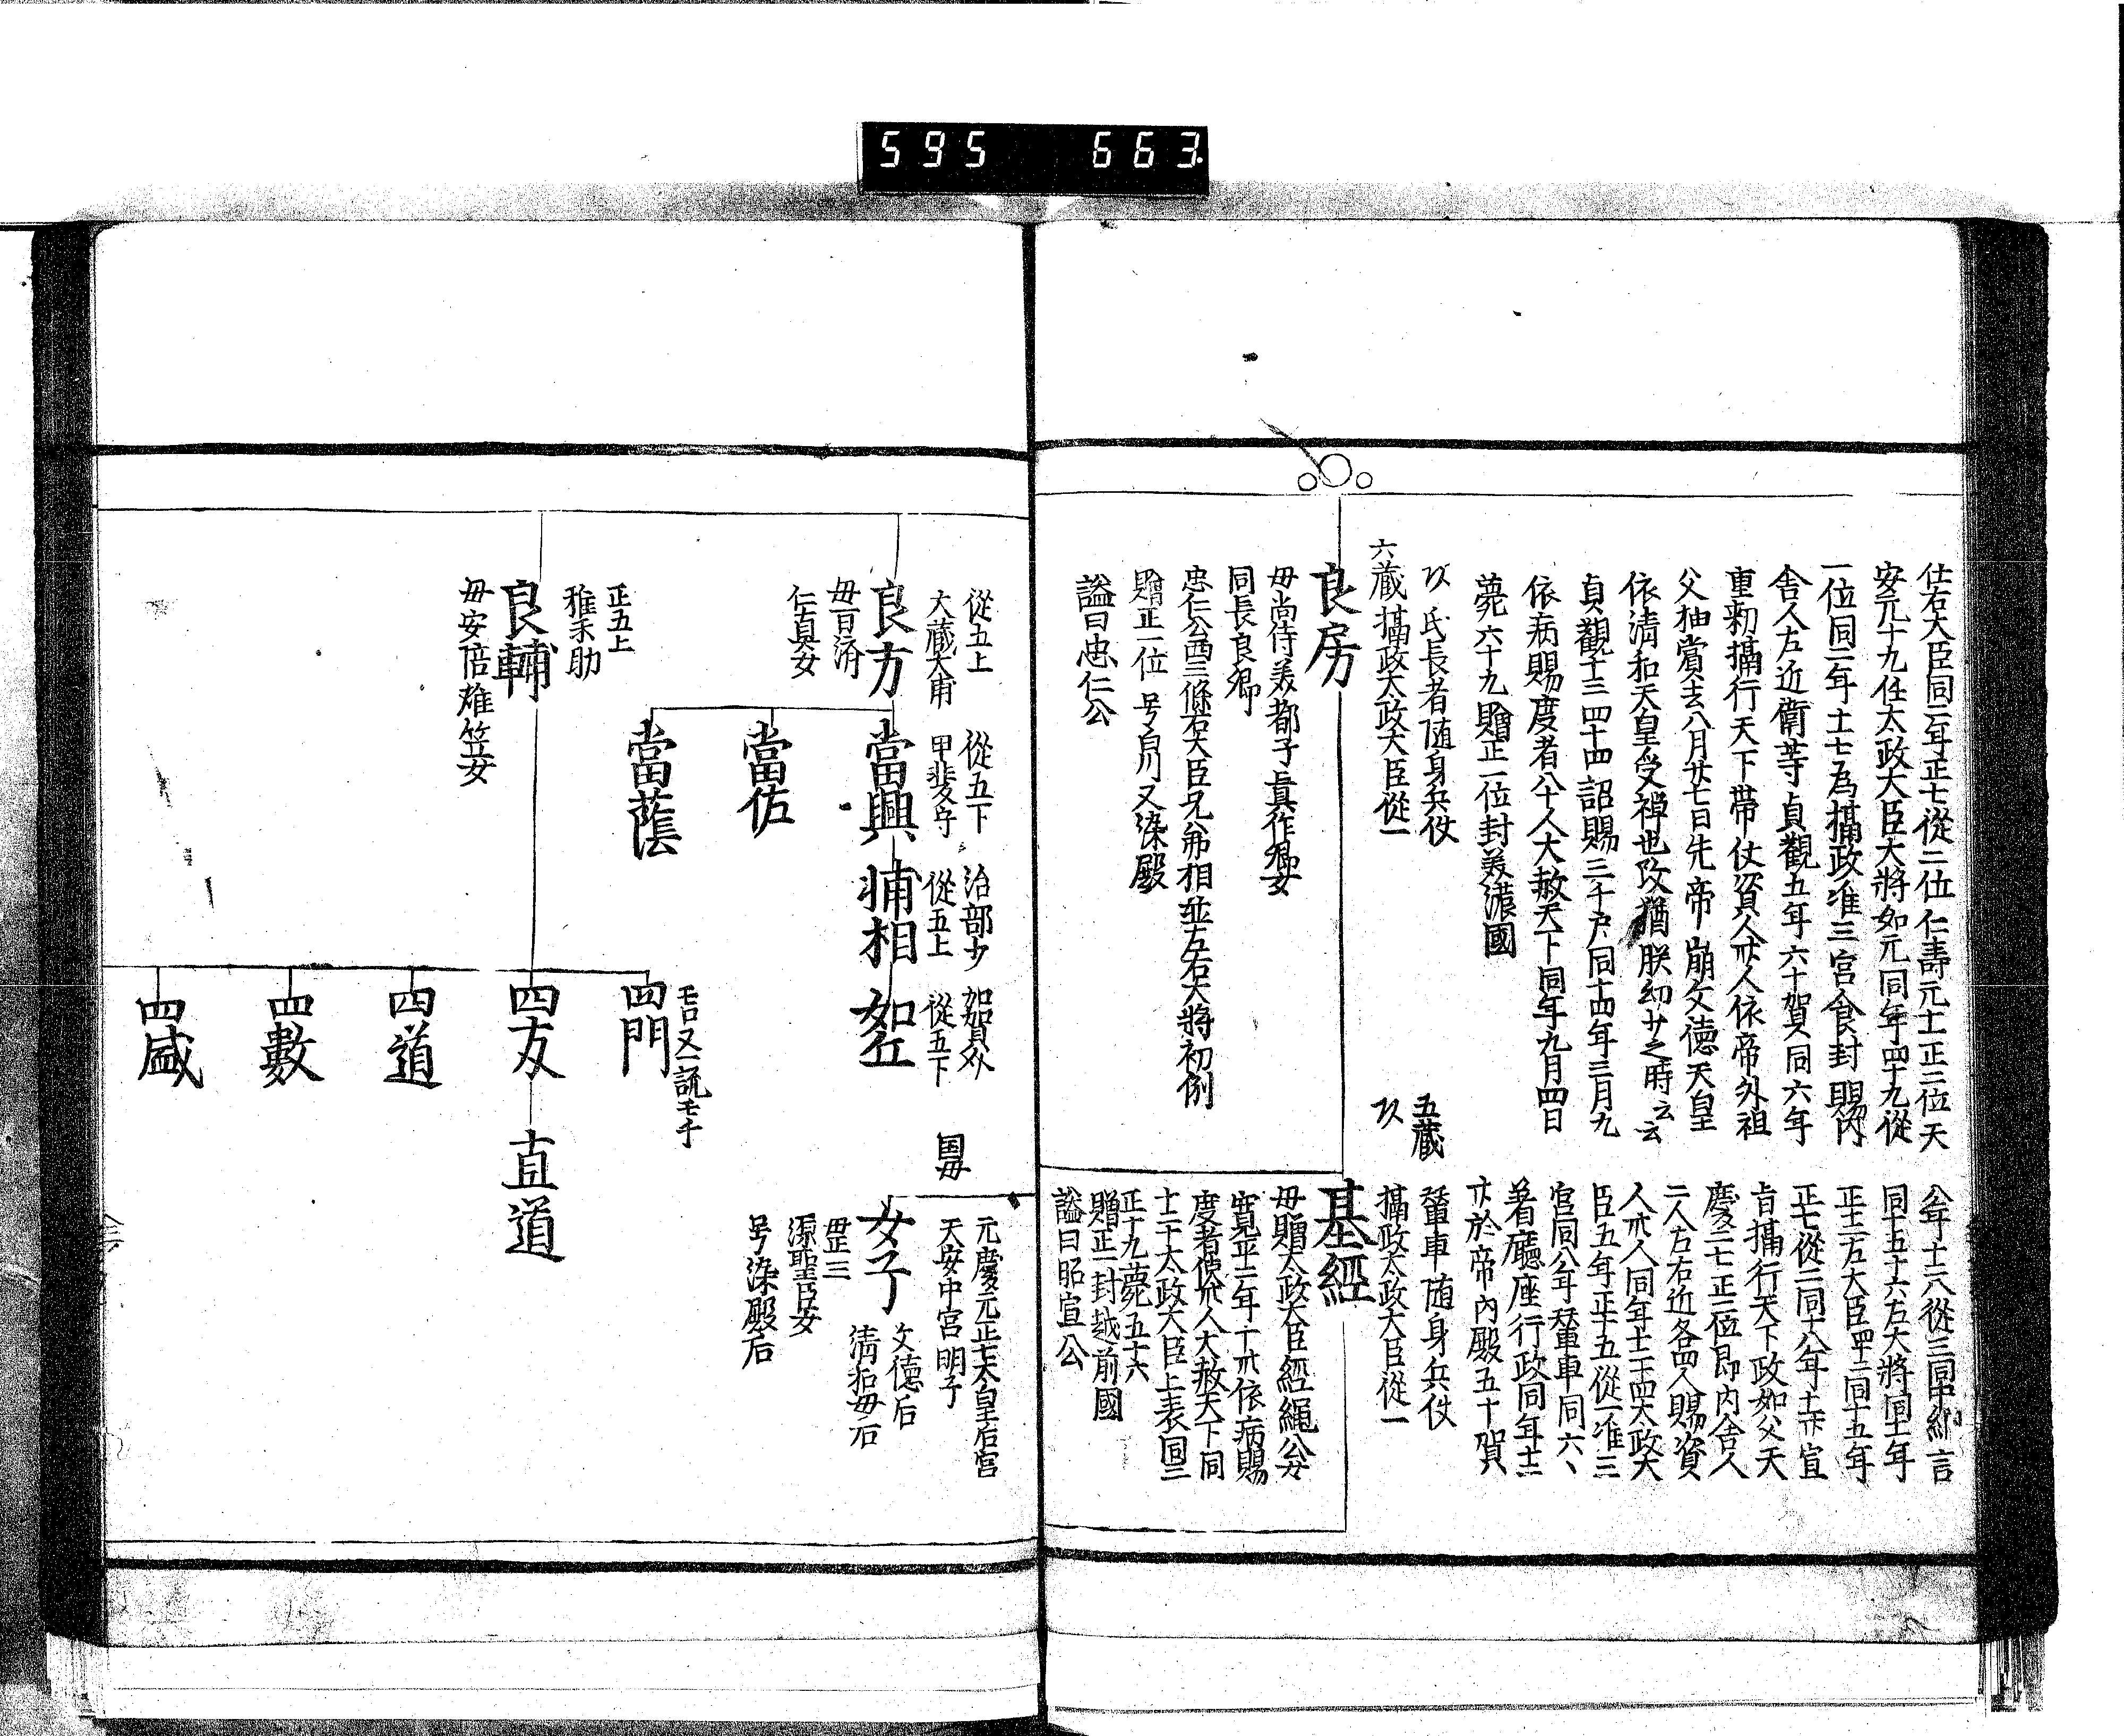 595 663
仕右大臣同二年正七從二位仁壽元十一正二位天
安元十九任太政大臣大將如元同年四十九從
一位同二年十一七為攝政准三宮食封賜內
舍人左近衛等貞觀五年六十賀同六年
重勅攝行天下帶仗資人卅人依帝外祖
父抽賞去八月廿七日先帝崩文德天皇
依清和天皇受禪也政猶朕幼少之時云云
貞觀十三四十四詔賜三千戶同十四年三月九
依病賜度者八十人大赦天下同年九月四日
薨六十九贈正一位封美濃國
氏長者随身兵仗
六蔵攝政太政大臣從一
良房
毋尚侍美都子真作卿女
同長良卿
忠仁公西三條右大臣兄弟相並左右大將初例
贈正一位号白川又染殿
謚曰忠仁公
從三同中納言
同十五十六左大將同十一年
左大臣四十二同十五年
正七從二同十八年
旨攝行天下政如父天
慶二七正二位即內舍人
二人左右近各四人賜資
人卅人同年十二十四太政大
臣五年正十五從一准三
宮同八年輦車同六
着廳座行政同年十二
於帝內殿五十賀
五蔵
輦車随身兵仗
攝政太政大臣從一
基經
毋贈太政大臣經繩公女
寛平二年十卅依病賜
度者使卅人大赦天下同
十二十太政大臣上表同三
正十九薨五十六
贈正一封越前國
謚曰昭宣公
從五上
大蔵大甫
良方
毋百済
仁貞女
從五下
甲斐守
當興
治部少
從五上
輔相
如賀外
從五下
如丘
當佐
當蔭
国毋
元慶元正七太皇后宮
天安中宮明子
女子
文德后
清和毋后
毋正三
源聖臣女
号染殿后
正五上
雅楽助
良輔
毋安倍雄笠女
又一說
四門
四友
直道
四道
四數
四盛